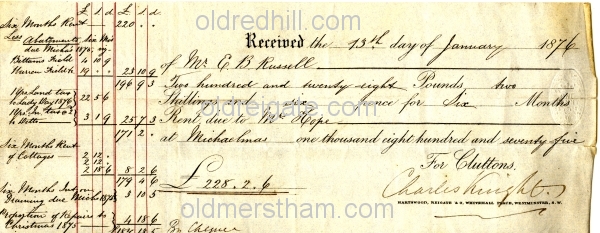 oldredhill.com
£ s d £ s d
Six Months Rent 220
Less Abatements Six Mos
due Michs 1875, viz
Bittams Field 4 10 9
Warren Field 19 23 10 9
196 9 3
Land tax
to Lady Day 1876 22 5 6
to Ditto 3 1 9 25 7 3
171 2
Six Months Rent
of Cottages 2 12
2 12
2 18 6 8 2 6
179 4 6
Six Months Int on
Draining due Michs 1875 3 10 5
Proportion of Repairs to
Christmas 1875 4 18 6
Received the 13th day of January 1876
of Mr. E B Russell
Two hundred and twenty eight Pounds two
Shilling and six pence for Six Months
oldreigate.com
Rent due to Mr. Hope
at Michaelmas one thousand eight hundred and seventy five
For Cluttons,
£ 228.2.6
Charles Knight.
HARTSWOOD, REIGATE & 9, WHITEHALL PLACE, WESTMINSTER, S.W.
oldmerstham.com